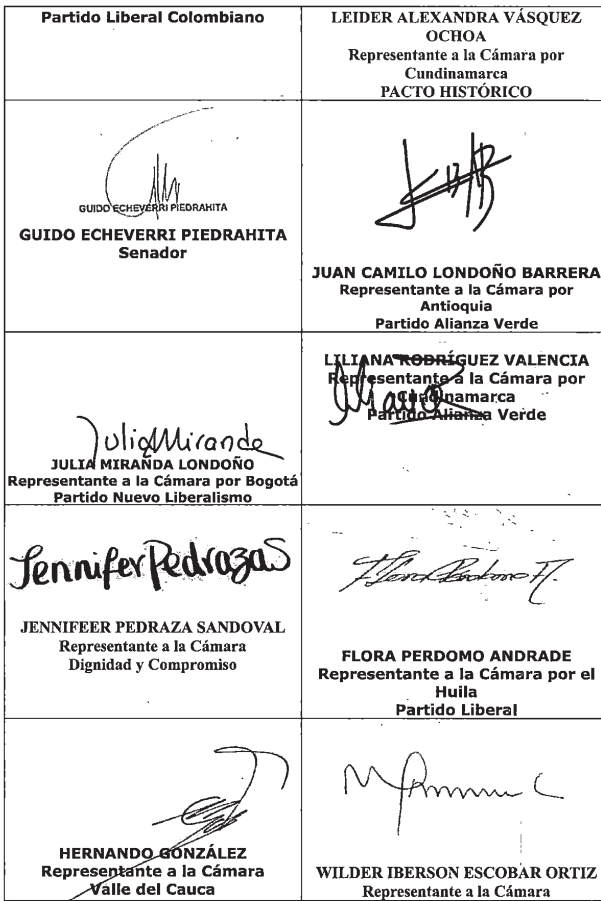 Partido Liberal Colombiano
LEIDER ALEXANDRA VÁSQUEZ
OCHOA
Representante a la Cámara por
Cundinamarca
PACTO HISTÓRICO
GUIDO ECHEVERRI PIEDRAHITA
GUIDO ECHEVERRI PIEDRAHITA
Senador
JUAN CAMILO LONDOÑO BARRERA
Representante a la Cámara por
Antioquia
Partido Alianza Verde
Julia Miranda
JULIA MIRANDA LONDOÑO
Representante a la Cámara por Bogotá
Partido Nuevo Liberalismo
LILIANA RODRÍGUEZ VALENCIA
Representante a la Cámara por
Cundinamarca
Partido Alianza Verde
Jennifer Pedraza S
JENNIFEER PEDRAZA SANDOVAL
Representante a la Cámara
Dignidad y Compromiso
Flora Perdomo A.
FLORA PERDOMO ANDRADE
Representante a la Cámara por el
Huila
Partido Liberal
HERNANDO GONZÁLEZ
Representante a la Cámara
Valle del Cauca
WILDER IBERSON ESCOBAR ORTIZ
Representante a la Cámara